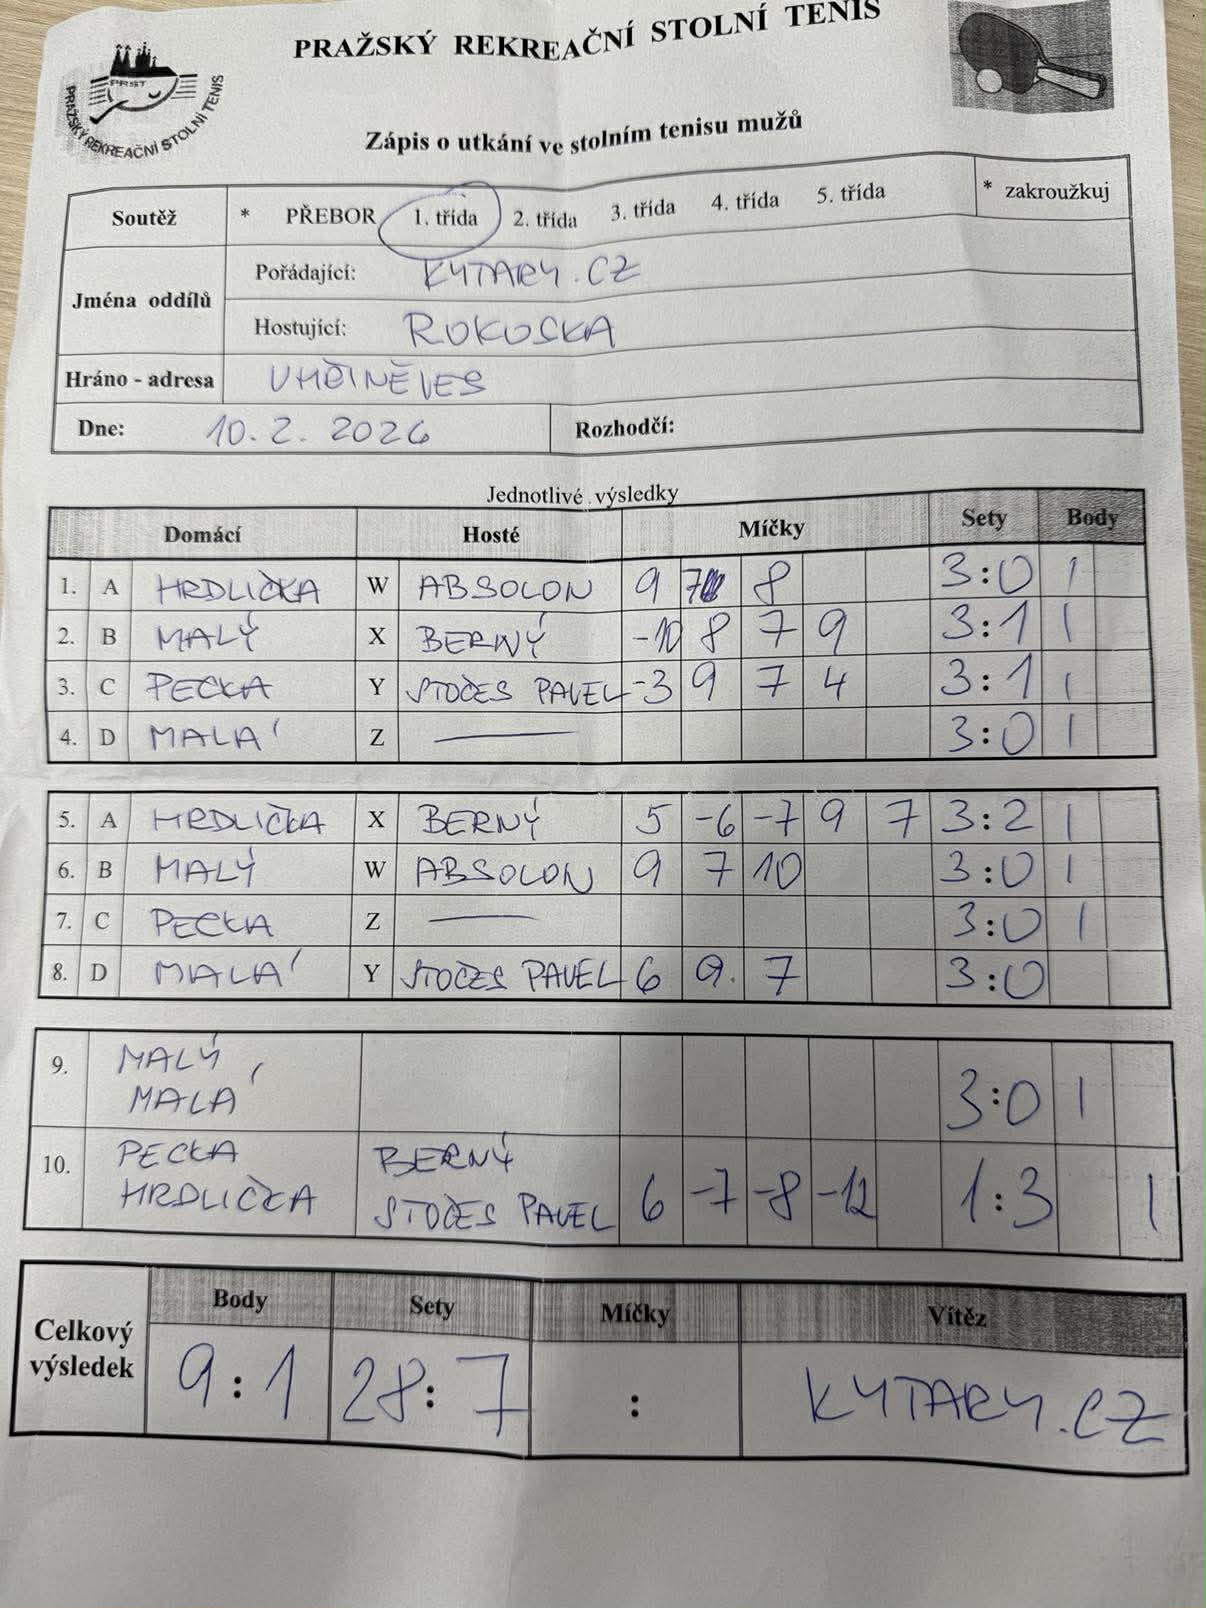 PRAŽSKÝ REKREAČNÍ STOLNÍ TENIS
PRST
PRAŽSKÝ REKREAČNÍ STOLNÍ TENIS
Zápis o utkání ve stolním tenisu mužů
Soutěž * PŘEBOR 1. třída 2. třída 3. třída 4. třída 5. třída * zakroužkuj
Jména oddílů
Pořádající: KYTARY.CZ
Hostující: ROKOSKA
Hráno - adresa UHŘÍNĚVES
Dne: 10. 2. 2026 Rozhodčí:
Jednotlivé výsledky
Domácí Hosté Míčky Sety Body
1. A HRDLIČKA W ABSOLON 9 7 8 3:0 1
2. B MALÝ X BERNÝ -10 8 7 9 3:1 1
3. C PECKA Y STOČES PAVEL -3 9 7 4 3:1 1
4. D MALÁ Z — 3:0 1
5. A HRDLIČKA X BERNÝ 5 -6 -7 9 7 3:2 1
6. B MALÝ W ABSOLON 9 7 10 3:0 1
7. C PECKA Z — 3:0 1
8. D MALÁ Y STOČES PAVEL 6 9. 7 3:0
9. MALÝ
MALÁ 3:0 1
10. PECKA BERNÝ
HRDLIČKA STOČES PAVEL 6 -7 -8 -12 1:3 1
Celkový výsledek
Body Sety Míčky Vítěz
9:1 28:7 : KYTARY.CZ